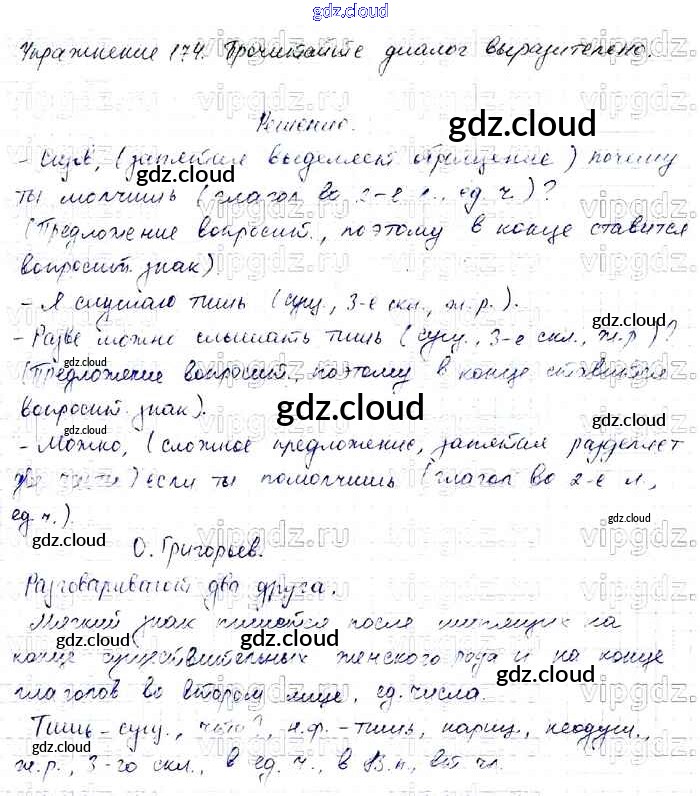 gdz.cloud
Упражнение 174. Прочитайте диалог выразительно.
Решение.
gdz.cloud
(запятая выделяет обращение) почему
gdz.cloud
ты молчишь (глагол во 2-е л., ед. ч.)?
(Предложение вопросит., поэтому в конце ставится
вопросит. знак)
gdz.cloud
- Я слушаю тишь (сущ., 3-е скл., ж.р.).
- Разве можно слышать тишь (сущ., 3-е скл., ж.р)?
gdz.cloud
gdz.cloud
(Предложение вопросит., поэтому в конце ставится
вопросит. знак).
gdz.cloud
gdz.cloud
- Можно, (сложное предложение, запятая разделяет
две части) если ты помолчишь (глагол во 2-е л.,
ед. ч.).
gdz.cloud
gdz.cloud
О. Григорьев.
Разговаривают два друга.
gdz.cloud
Мягкий знак пишется после шипящих на
gdz.cloud
gdz.cloud
конце существительных женского рода и на конце
глаголов во втором лице, ед. числа.
gdz.cloud
Тишь - сущ., что?, н.ф. - тишь, нариц., неодуш.,
gdz.cloud
ж.р., 3-го скл., в ед. ч., в В.п., вт. чл.
gdz.cloud